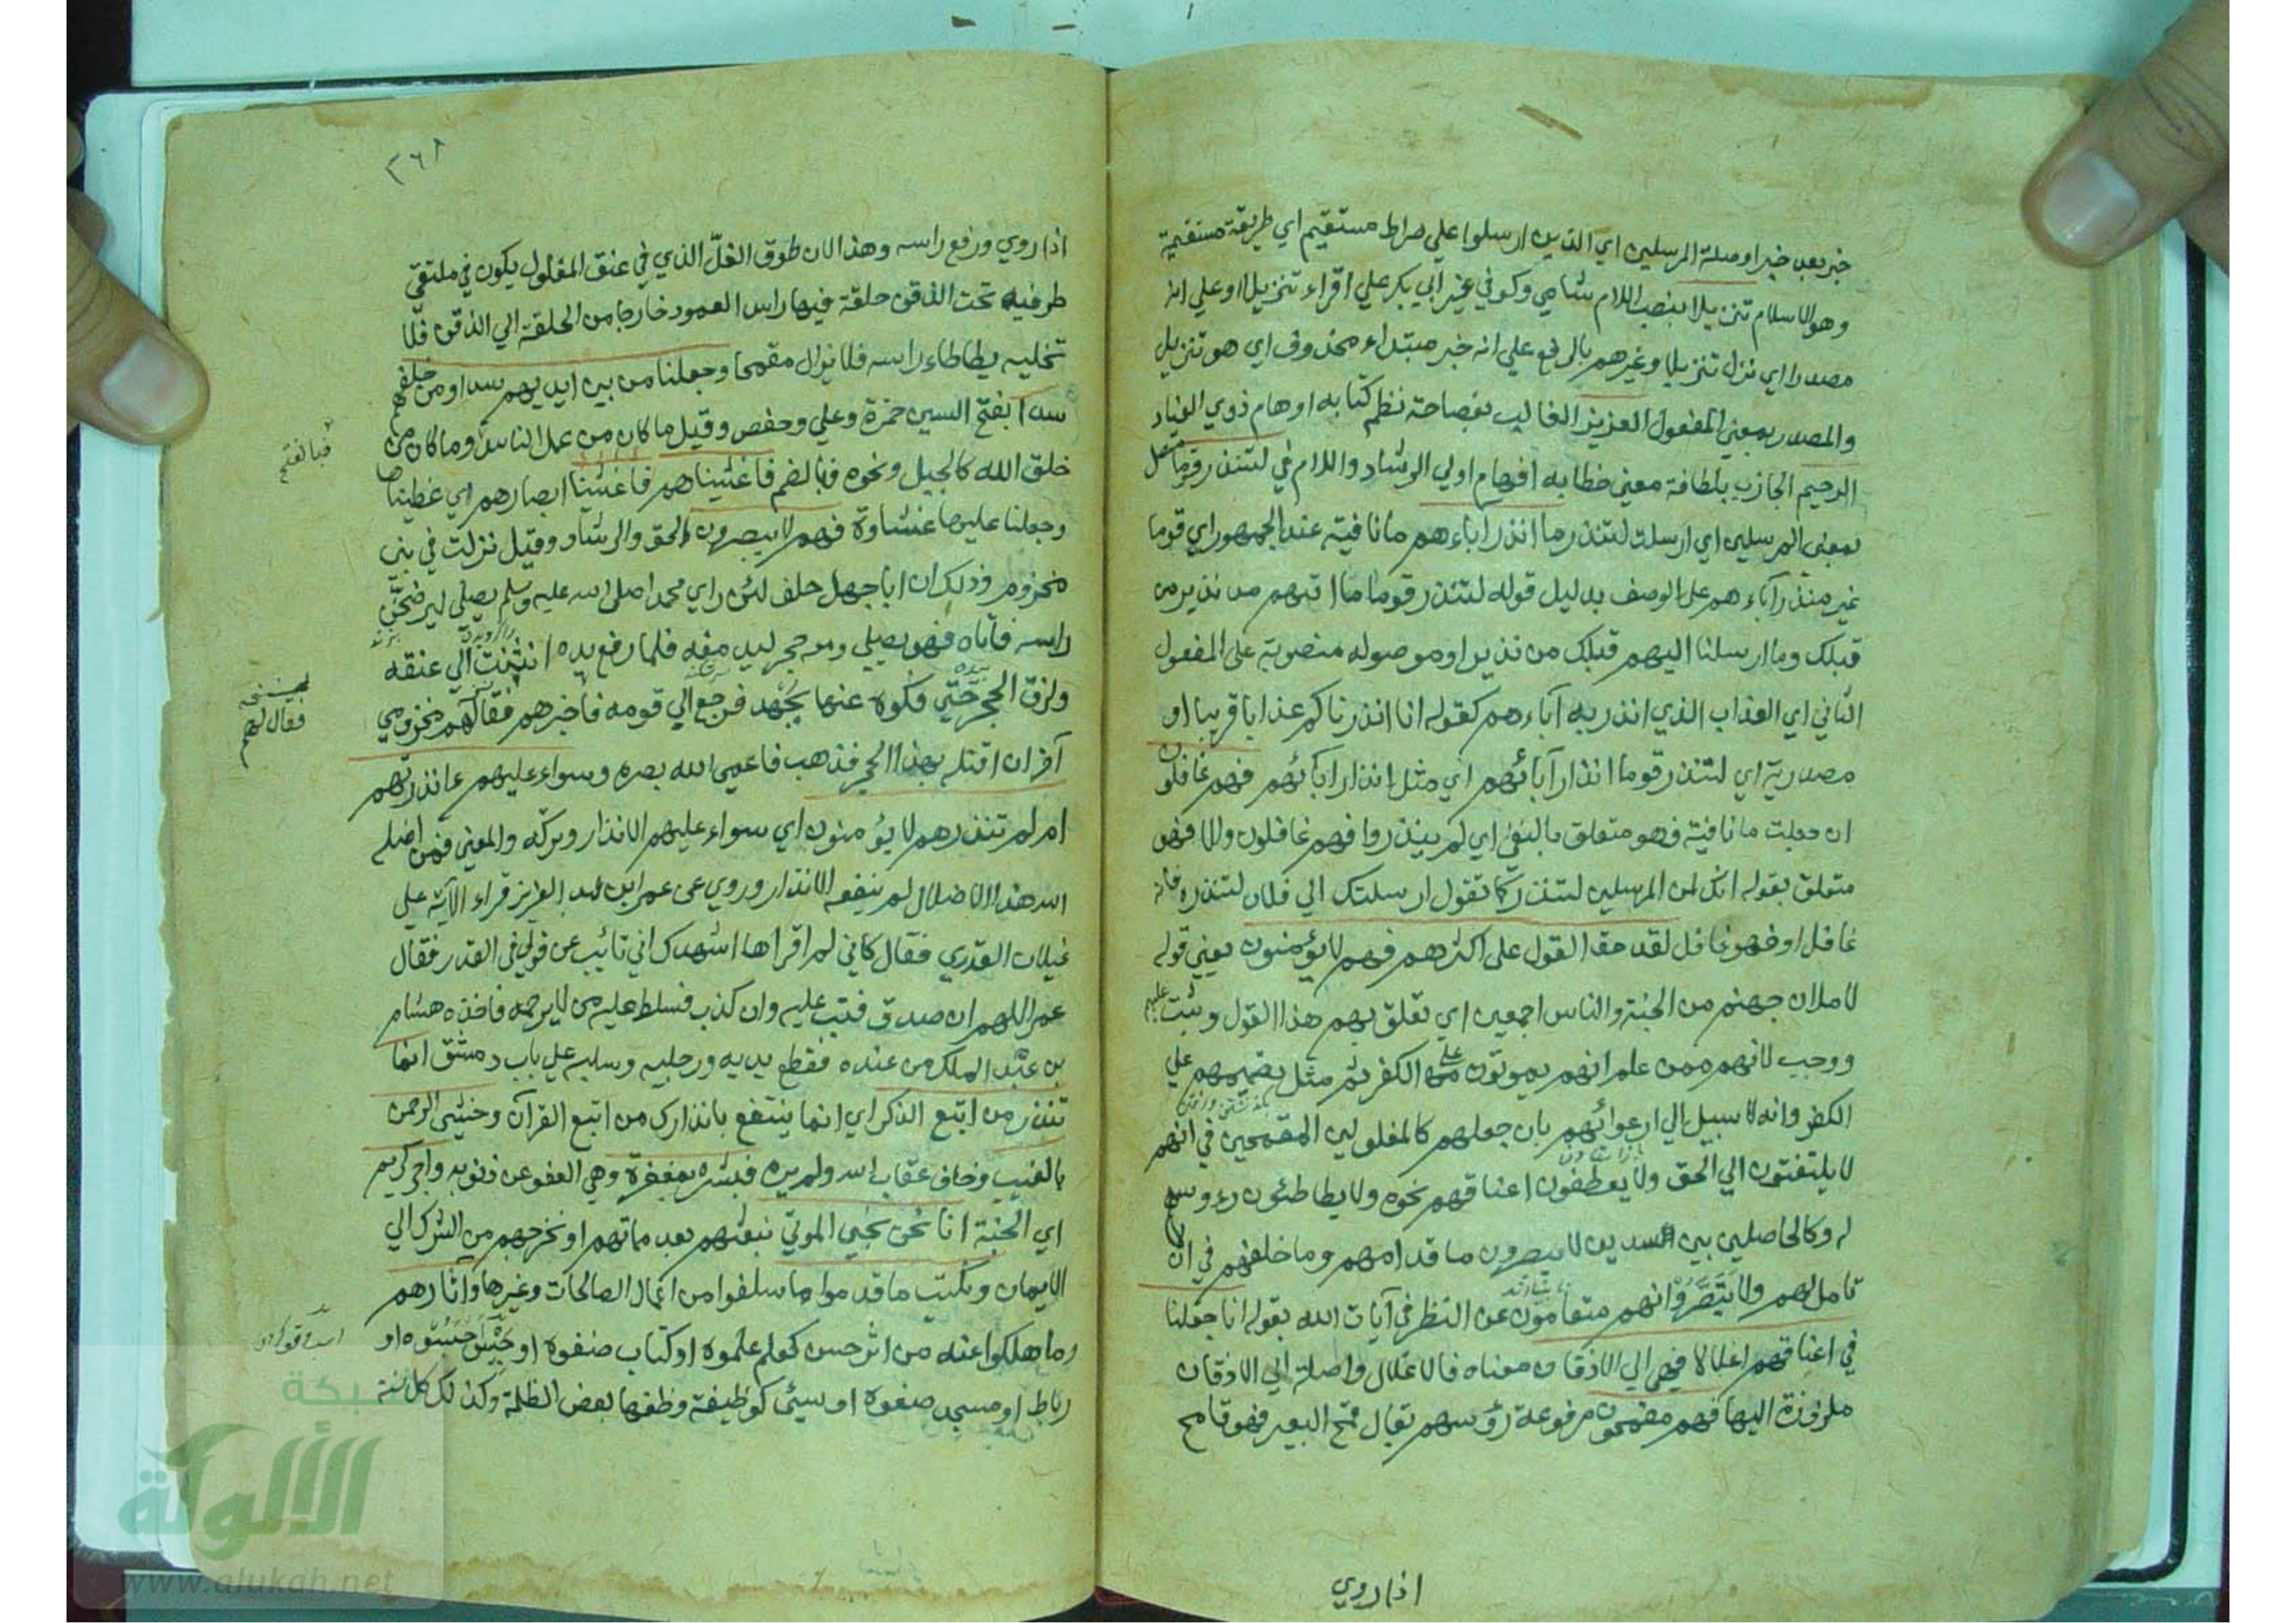 خبر بعد خبر او صلة المرسلين اي الذين ارسلوا علي صراط مستقيم اي طريقة مستقيمة
وهو الاسلام تنزيلا بنصب اللام شامي وكوفي غير ابي بكر علي اقراء تنزيلا او علي انه
مصدر اي نزل تنزيلا وغيرهم بالرفع علي انه خبر مبتداء محذوف اي هو تنزيل
والمصدر بمعني المفعول العزيز الغالب بفصاحة نظم كتابه اوهام ذوي العناد
الرحيم الجاذب بلطافة معني خطابه افهام اولي الرشاد واللام في لتنذر قوما متصل
بمعني المرسلين اي ارسلت لتنذر ما انذر اباءهم ما نافية عند الجمهور اي قوما
غير منذر آباءهم علي الوصف بدليل قوله لتنذر قوما ما اتيهم من نذير من
قبلك وما ارسلنا اليهم قبلك من نذير او موصوله منصوبة على المفعول
الثاني اي العذاب الذي انذر به آباءهم كقوله انا انذرناكم عذابا قريبا او
مصدرية اي لتنذر قوما انذار آبائهم اي مثل انذار ابائهم فهم غافلون
ان جعلت ما نافية فهو متعلق بالنفي اي لم ينذروا فهم غافلون والا فهو
متعلق بقوله انك لمن المرسلين لتنذر كما تقول ارسلتك الي فلان لتنذره فانه
غافل او فهو غافل لقد حق القول على اكثرهم فهم لا يؤمنون يعني قوله
لاملان جهنم من الجنة والناس اجمعين اي تعلق بهم هذا القول وثبت عليهم
ووجب لانهم ممن علم انهم يموتون علي الكفر ثم مثل تصميمهم علي
الكفر وانه لا سبيل الي ارعوائهم بان جعلهم كالمغلولين المقمحين في انهم
لا يلتفتون الي الحق ولا يعطفون اعناقهم نحوه ولا يطاطئون رءوسهم
له وكالحاصلين بين السدين لا يبصرون ما قدامهم وما خلفهم في ان لا
تامل لهم ولا تبصر وانهم متعامون عن النظر في آيات الله بقوله انا جعلنا
في اعناقهم اغلالا فهي الي الاذقان معناه فالاغلال واصلة الي الاذقان
ملزوزة اليها فهم مقمحون مرفوعة رؤسهم يقال قمح البعير فهو قامح
اذا روي
٣٦٨
اذا روي ورفع راسه وهذا لان طوق الغلّ الذي في عنق المغلول يكون في ملتقي
طرفيه تحت الذقن حلقة فيها راس العمود خارجا من الحلقة الي الذقن فلا
تخليه يطاطاء راسه فلا يزال مقمحا وجعلنا من بين ايديهم سدا ومن خلفهم
سدا بفتح السين حمزة وعلي وحفص وقيل ما كان من عمل الناس وما كان من
خلق الله كالجبل ونحوه فبالضم فاغشيناهم فاغشينا ابصارهم اي غطيناها
وجعلنا عليها غشاوة فهم لا يبصرون الحق والرشاد وقيل نزلت في بني
مخزوم وذلك ان ابا جهل حلف لئن راي محمدا صلى الله عليه وسلم يصلي ليرضخن
راسه فاتاه فهو يصلي ومعه حجر ليدمغه فلما رفع يده انثنت الي عنقه
ولزق الحجر حتي فكوه عنها بجهد فرجع الي قومه فاخبرهم فقال لهم مخزومي
آخر ان اقتله بهذا الحجر فذهب فاعمي الله بصره وسواء عليهم ءانذرتهم
ام لم تنذرهم لا يؤمنون اي سواء عليهم الانذار وتركه والمعني فمن اضله
الله هذا الاضلال لم ينفعه الانذار وروي عن عمر ابن عبد العزيز قراء الآية علي
غيلان القدري فقال كاني لم اقراها اشهدك اني تائب عن قولي في القدر فقال
عمر اللهم ان صدق فتب عليه وان كذب فسلط عليه من لا يرحمه فاخذه هشام
بن عبد الملك من عنده فقطع يديه ورجليه وسلبه علي باب دمشق انما
تنذر من اتبع الذكر اي انما ينتفع بانذارك من اتبع القرآن وخشي الرحمن
بالغيب وخاف عقاب الله ولم يره فبشره بمغفرة وهي العفو عن ذنوبه واجر كريم
اي الجنة انا نحن نحيي الموتي نبعثهم بعد مماتهم او نخرجهم من الشرك الي
الايمان ونكتب ما قدموا ما سلفوا من اعمال الصالحات وغيرها واثارهم
وما هلكوا عنه من اثر حسن كعلم علموه او كتاب صنفوه او حبيس حبسوه او
رباط او مسجد صنعوه او سيئ كوظيفة وظفها بعض الظلمة وكذلك كل سنة
فبالفتح
نسخه
فقال لهم
شبكة
الألوكة
www.alukah.net